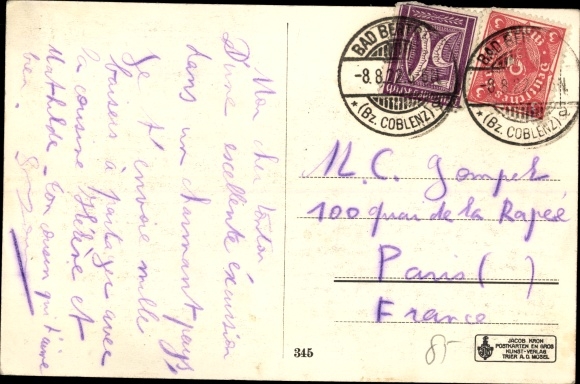 Mon cher tonton
D'une excellente excursion
dans un charmant pays
Je t'envoie mille
baisers à partager avec
la cousine Hélène et
Mathilde - Ton cousin qui t'aime
bien.
BAD BERTRICH
-8.8.22
* (Bz. COBLENZ) a
BAD BERTRICH
8.8
* (Bz. COBLENZ) a
M. C. Gompel
100 quai de la Rapée
Paris ( )
France
85
345
JACOB KRON
POSTKARTEN EN GROS
KUNST-VERLAG
TRIER A. D. MOSEL